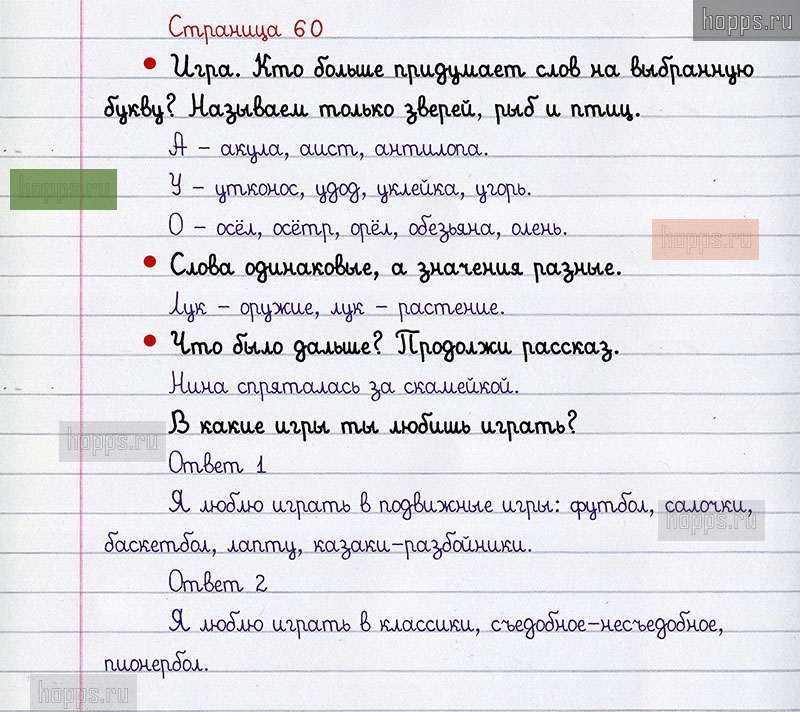 hopps.ru
Страница 60
• Игра. Кто больше придумает слов на выбранную
букву? Называем только зверей, рыб и птиц.
А – акула, аист, антилопа.
hopps.ru
У – утконос, удод, уклейка, угорь.
О – осёл, осётр, орёл, обезьяна, олень.
hopps.ru
• Слова одинаковые, а значения разные.
Лук – оружие, лук – растение.
• Что было дальше? Продолжи рассказ.
Нина спряталась за скамейкой.
В какие игры ты любишь играть?
hopps.ru
Ответ 1
Я люблю играть в подвижные игры: футбол, салочки,
hopps.ru
баскетбол, лапту, казаки-разбойники.
Ответ 2
Я люблю играть в классики, съедобное-несъедобное,
пионербол.
hopps.ru